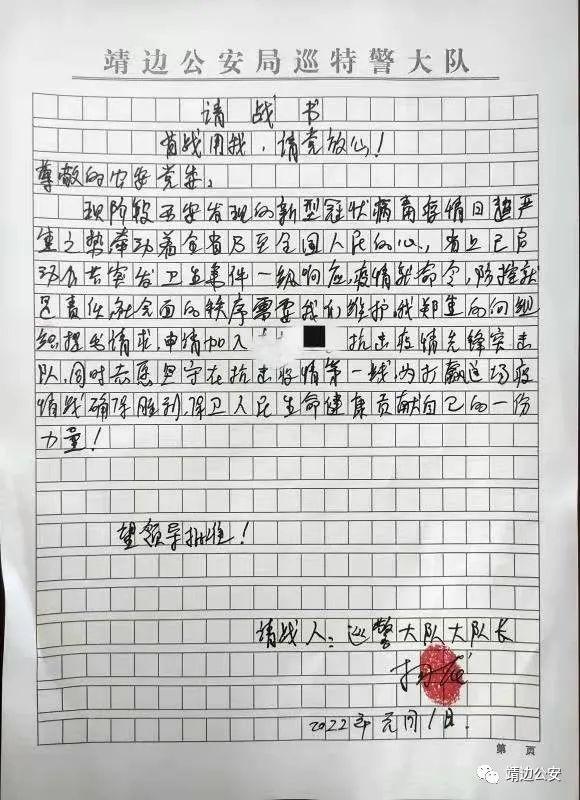 靖边公安局巡特警大队
请战书
若战用我，请党放心！
尊敬的公安党委：
现阶段西安发现的新型冠状病毒疫情日趋严
重之势牵动着全省乃至全国人民的心，省上已启
动公共突发卫生事件一级响应，疫情就命令，防控就
是责任，社会面的秩序需要我们维护，我郑重的向组
织提出请求，申请加入 抗击疫情先锋突击
队，同时亦愿坚守在抗击疫情第一线，为打赢这场疫
情战确保胜利，保卫人民生命健康贡献自己的一份
力量！
望领导批准！
请战人：巡警大队大队长
2022年元月1日.
第 页
靖边公安